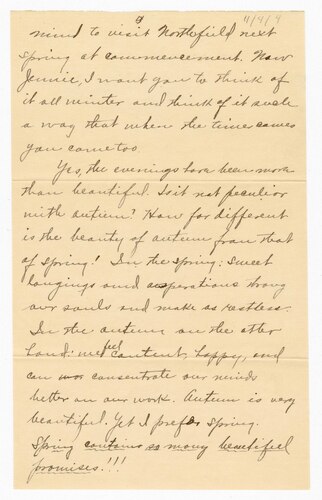 9
11/9/9
mind to visit Northfield next
spring at commencement. Now
Jennie, I want you to think of
it all winter and think of it such
a way that when the time comes
you come too
Yes, the evenings have been more
than beautiful. Is it not peculior
with autum? How for different
is the beauty of autum from that
of Spring! In the spring: sweet
longings and asperations throng
our souls and make as restless.
In the autum on the other
hand: we feel content, happy, and
can consentrate our minds
better on our work. Autum is very
beautiful. Yet I prefer Spring.
Spring contains so many beautiful
promises!!!